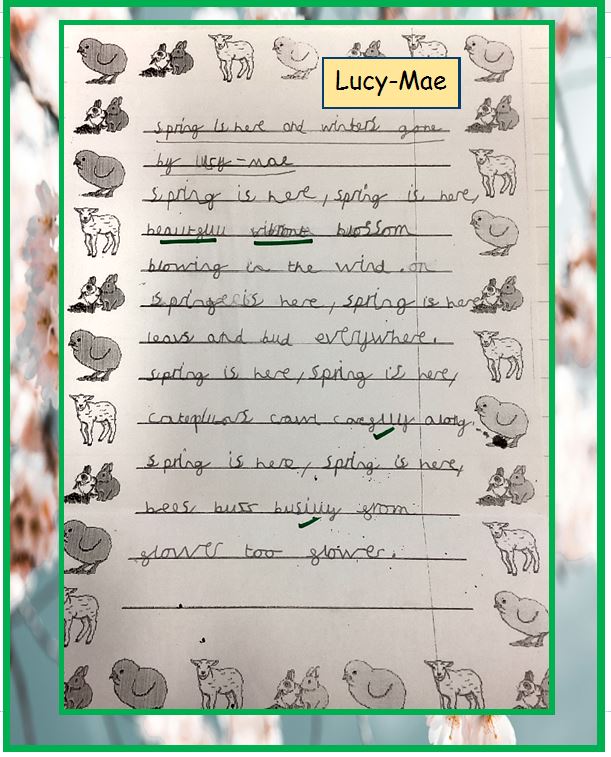 Lucy-Mae
spring is here and winter's gone
by lucy-mae
spring is here, spring is here,
beautyful vibrant blossom
blowing in the wind. on
is here, spring is here
leavs and bud everywhere.
spring is here, spring is here,
crawl along.
spring is here, spring is here,
bees buzz from
flower too flower.